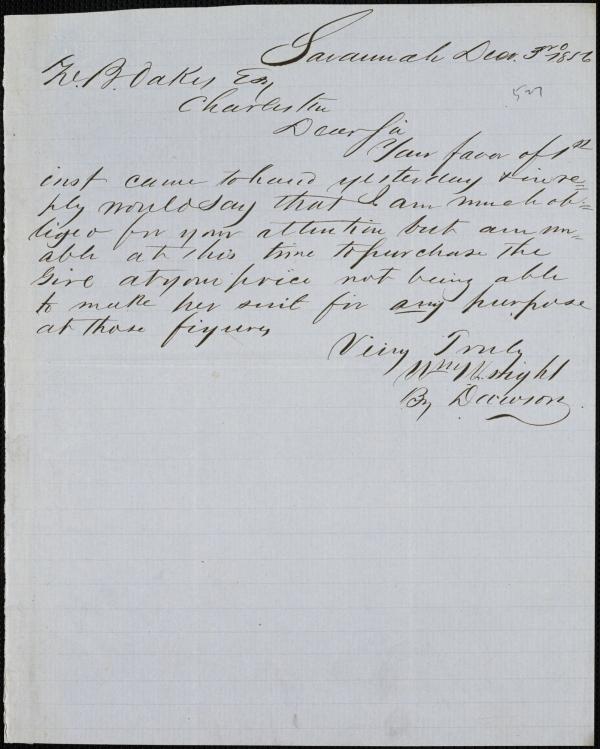 Savannah Decr. 3rd 1856
527
Z. B. Oakes Esq
Charleston
Dear Sir
Your favor of 1st
inst came to hand yesterday & in re=
ply would say that I am much ob=
liged for your attention but am un=
able at this time to purchase the
Girl at your price not being able
to make her suit for any purpose
at those figures
Very Truly
Wm Knight
By Dawson